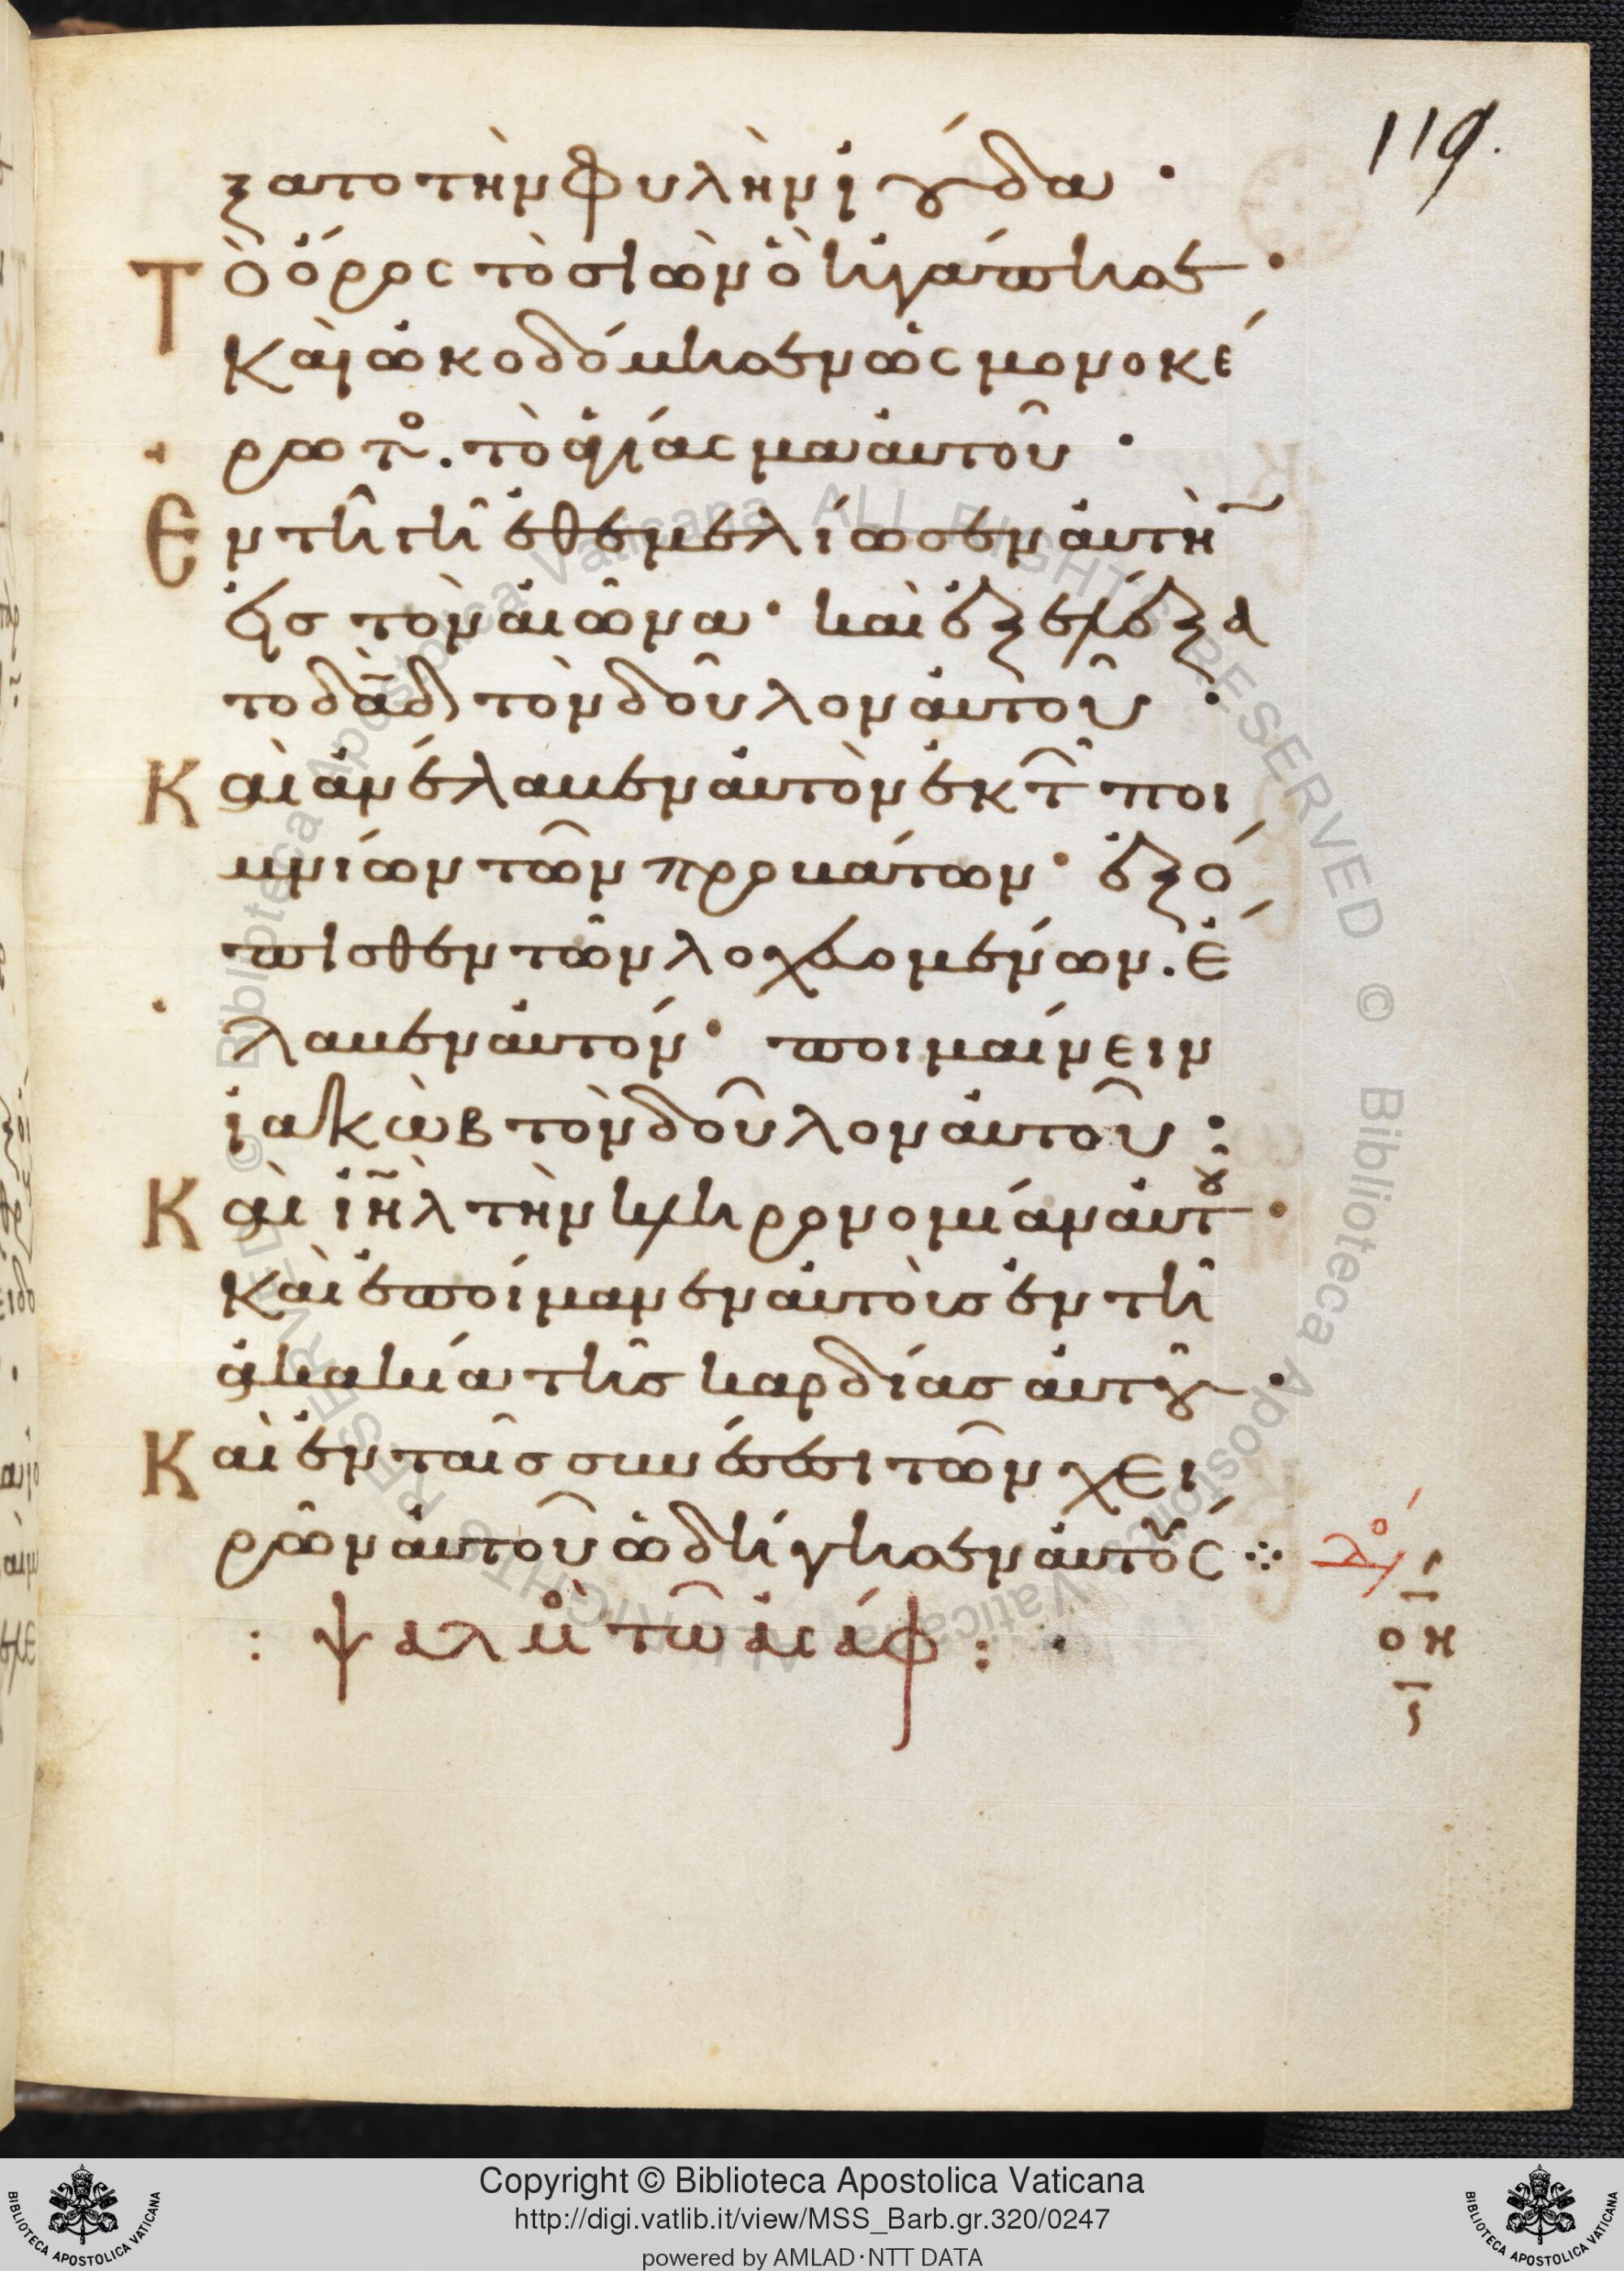 119.
ξατο τὴν φυλὴν ἰούδα ·
Τὸ ὄρος τὸ σιὼν ὃ ἠγάπησε ·
Καὶ ὠκοδόμησεν ὡς μονοκέ
ρωτο . τὸ ἁγίασμα αὐτοῦ ·
Ἐν τῆ γῆ ἐθεμελίωσεν αὐτὴν
εἰς τὸν αἰῶνα · καὶ ἐξελέξα
το δᾱδ τὸν δοῦλον αὐτοῦ ·
Καὶ ἀνέλαβεν αὐτὸν ἐκ τῶν ποι
μνίων τῶν προβάτων · ἐξό
πισθεν τῶν λοχευομένων . ἔ
λαβεν αὐτόν · ποιμαίνειν
ἰακὼβ τὸν δοῦλον αὐτοῦ :
Καὶ ἰη̄λ τὴν κληρονομίαν αὐτοῦ ·
Καὶ ἐποίμανεν αὐτοὺς ἐν τῆ
ἀκακία τῆς καρδίας αὐτοῦ ·
Καὶ ἐν ταῖς συνέσεσι τῶν χει
ρῶν αὐτοῦ ὡδήγησεν αὐτούς ⁘
: ψαλμὸς τῶ ἀσάφ :
οη
Copyright © Biblioteca Apostolica Vaticana
http://digi.vatlib.it/view/MSS_Barb.gr.320/0247
powered by AMLAD·NTT DATA
BIBLIOTECA APOSTOLICA VATICANA
BIBLIOTECA APOSTOLICA VATICANA